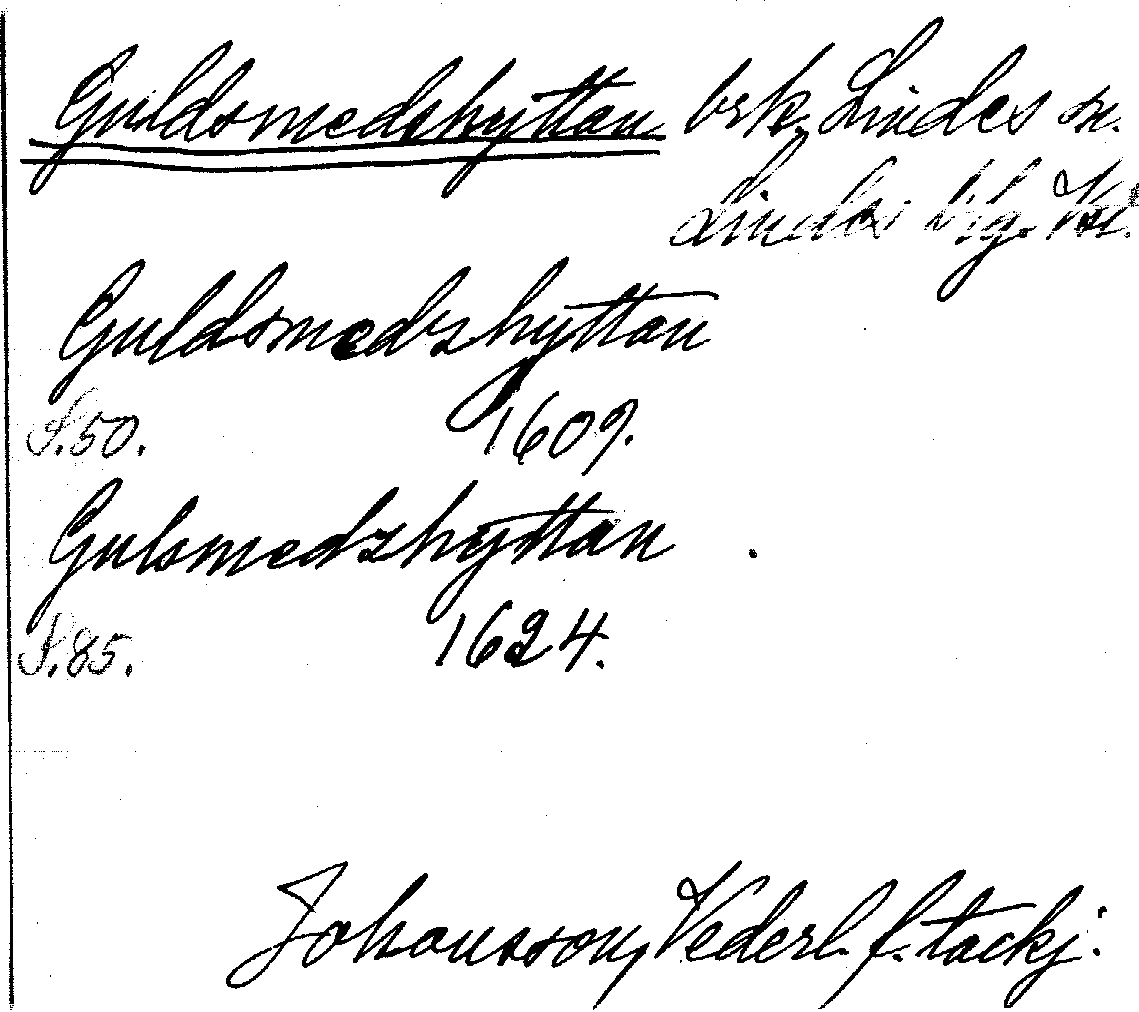 Guldsmedshyttan brk, Lindes sn.
Lindes blg. Vsl.
Guldsmedzhyttan
S.50. 1609.
Gulsmedzhyttan
S.85. 1624.
Johansson, Vederl. f. tackj.